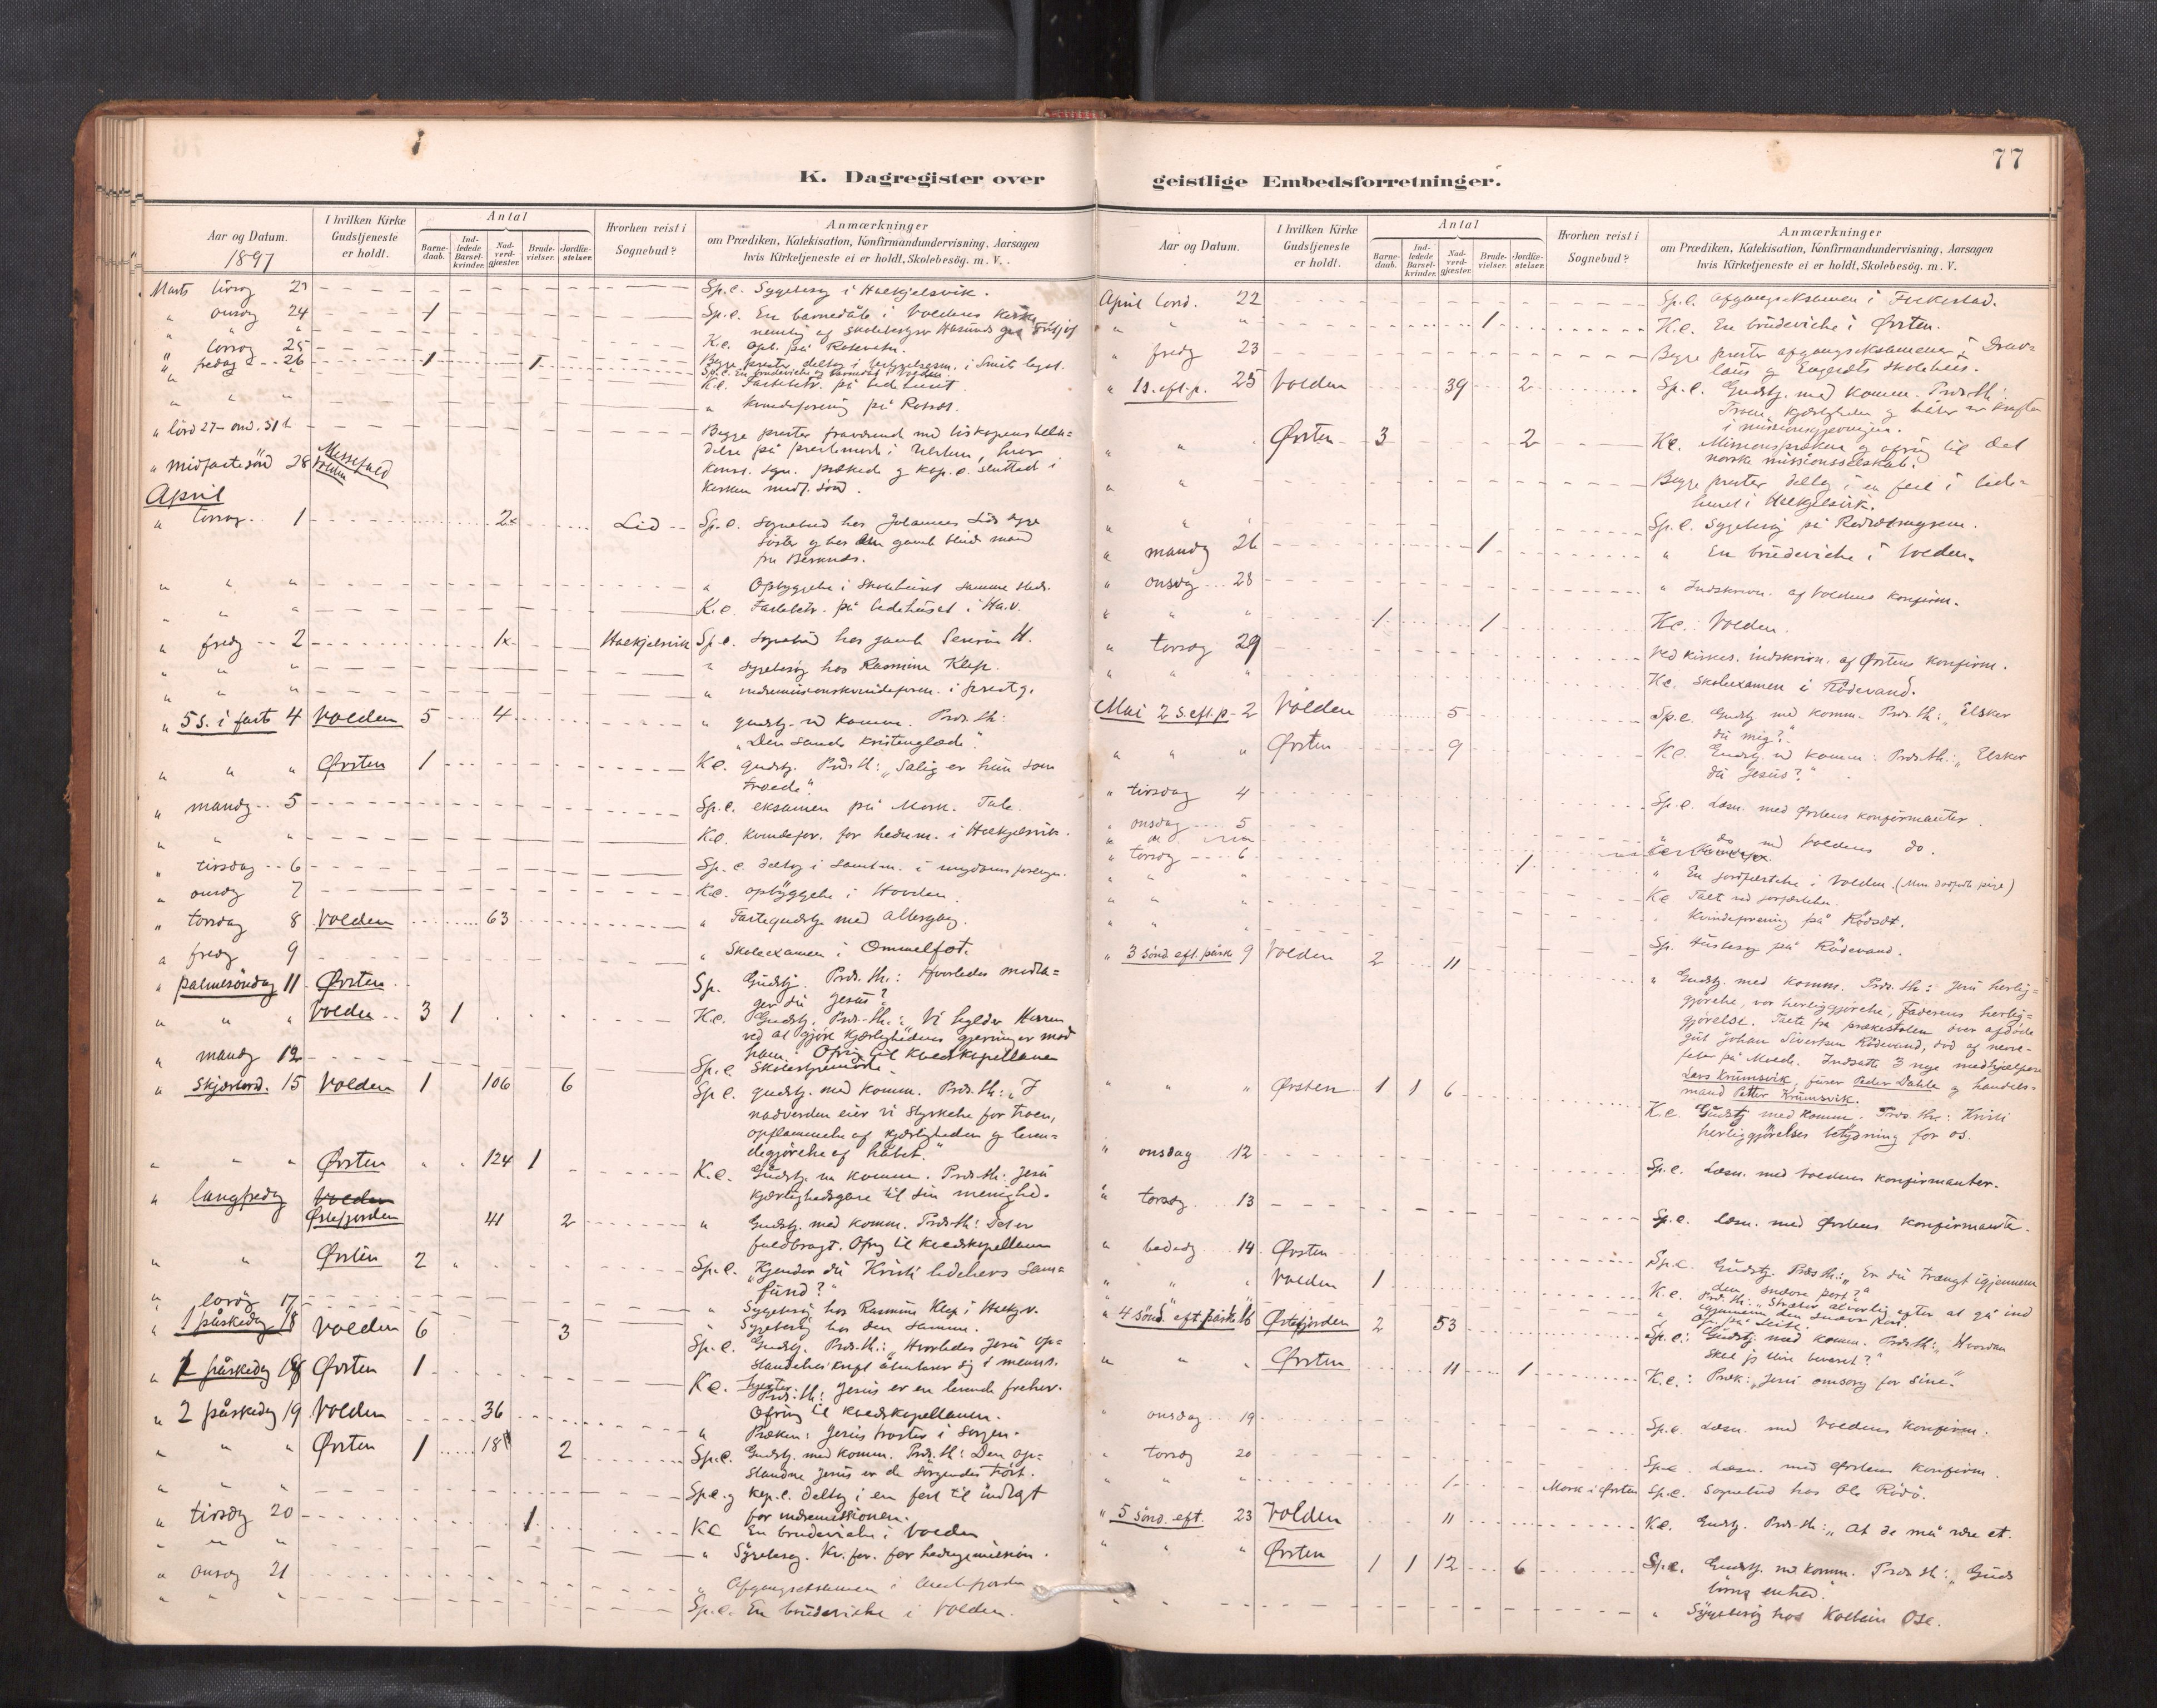 77
K. Dagregister over
geistlige Embedsforretninger.
Aar og Datum.
1897
I hvilken Kirke
Gudstjeneste
er holdt.
Antal
Barne-
daab.
Ind-
ledede
Barsel-
kvinder.
Nad-
verd-
gjæster.
Brude-
vielser.
Jordfæ-
stelser.
Hvorhen reist i
Sognebud?
Anmærkninger
om Prædiken, Katekisation, Konfirmandundervisning, Aarsagen
hvis Kirketjeneste ei er holdt, Skolebesög. m. V.
Marts tirsdg 23 Sp.c. Sygebesøg i Halkjelsvik.
" onsdg 24 1 Sp.c. En barnedåb i Voldens kirke
" " " K.c. opb. på
" torsdg 25
" fredag 26 1 1 Begge prester deltog i
" " " K.c. Fastebetr. på bedehuset
" " " " kvindeforening på Rotset.
" lörd 27 - onsd. 31 Begge prester fraværend med biskopens tilla-
delse på prestemöde i
" Midfastesönd 28 Volden
kirken midf. sönd.
April
" torsdg 1 2x Lid Sp.c. Sognebud hos Johannes Lids syge
söster og hos den gamle blinde mand
" " " " Opbyggelse i skolehuset samme sted.
" " " K.c. Fastebetr. på bedehuset i Ha.v.
" fredg 2 1x Halkjelsvik Sp.c. Sognebud hos gamle Severin H.
" " " " Sygebesög hos Rasmine Klep.
" " " " indremissionskvindeforen. i prestg.
" 5 s. i faste 4 Volden 5 4 " gudstj. m komm. Præd. th:
"Den sande kristenglæde".
" " " Ørsten 1 K.c. gudstj. Præd. th: "Salig er hun som
troede".
" mandg 5 Sp.c. eksamen på Mork.
" " " K.c. kvindefor. for hedn.m. i Halkjelsvik.
" tirsdag 6 Sp.c. deltog i samtm. i ungdomsforenigen.
" onsdg 7 K.c. opbyggelse i Hovden.
" torsdag 8 Volden 63 " Fastegudstj. med altergang.
" fredg 9 " Skoleexamen i Ommelfot.
" palmesöndag 11 Ørsten Sp. Gudstj. Præd. th.: Hvorledes modta-
ger du Jesus?
" " " Volden 3 1 K.c. Gudstj. Præd. th.: Vi hylder Herren
ved at gjöre kjærlighedens gjerninger mod
ham. Ofring til kaldskapellanen
" mandg 12 Sp.c. Skolestyremöde.
" Skjærtorsd. 15 Volden 1 106 6 Sp.c. gudstj. med komm. Præd. th: "I
nadverden eier vi styrkelse for troen,
opflammelse af kjærligheden og leven-
degjörelse af håbet".
" " " Ørsten 124 1 K.c. Gudstj. m komm. Præd. th: Jesu
kjærlighedsgave til sin menighed.
" langfredg Volden
Østefjorden 41 2 " Gudstj. med komm. Præd. th: Det er
fuldbragt. Ofrg til kaldskapellanen
" " Ørsten 2 Sp.c. "Kjender du Kristi lidelsers sam-
fund?"
" lördg 17 " Sygebesög hos Rasmine Klep i Halkj.v.
" Sygebesög hos den samme.
" 1 påskedag 18 Volden 6 3 Sp.c. Gudstj. Præd. th.: "Hvorledes Jesu op-
standelses kraft åbenbarer sig i menns.
hjerter.
" 1 påskedag 18 Ørsten 1 K.c. Præd. th: Jesus er en levende frelser.
Ofring til kaldskapellanen.
" 2 påskedag 19 Volden 36 " Præken: Jesus tröster i sorgen.
" " " Ørsten 1 18 2 Sp.c. Gudstj. med komm. Præd. th: Den op-
standne Jesus er de sörgendes tröst.
" " " Sp.c. og kap.c. deltog i en fest til indtægt
for indremissionen.
" tirsdg 20 1 K.c. En brudevielse i Volden
" " " " Sygebesög. Kv.for. for hedningemission.
" onsdg 21 " Afgangseksamen i
" " " Sp.c. En brudevielse i Volden.
Aar og Datum.
I hvilken Kirke
Gudstjeneste
er holdt.
Antal
Barne-
daab.
Ind-
ledede
Barsel-
kvinder.
Nad-
verd-
gjæster.
Brude-
vielser.
Jordfæ-
stelser.
Hvorhen reist i
Sognebud?
Anmærkninger
om Prædiken, Katekisation, Konfirmandundervisning, Aarsagen
hvis Kirketjeneste ei er holdt, Skolebesög. m. V.
April torsd. 22 Sp.c. afgangseksamen i Folkestad.
" " " 1 K.c. En brudevielse i Ørsten.
" fredg 23 Begge prester afgangseksamener i
skolehus.
" 1 s. eft. p. 25 Volden 39 2 Sp.c. Gudstj. med komm. Præd. th:
Troen, kjærligheden og håbet
i missionsgjerningen.
" " " Ørsten 3 2 K.c. Missionspræken og ofring til det
norske missionsselskab.
" " Begge prester deltog i en fest i bede-
huset i Halkjelsvik.
" " " Sp.c. Sygebesög på
" mandg 26 1 " En brudevielse i Volden.
" onsdg 28 " Indskrivn. af Voldens konfirm.
" " " 1 1 K.c. Volden.
" torsdg 29 Ved kirkes. indskrivn. af Ørstens konfirm.
" " " K.c. Skoleexamen i Rödevand.
Mai 2 s. eft. p. 2 Volden 5 Sp.c. Gudstj. med komm. Præd. th: "Elsker
du mig?"
" " " Ørsten 9 K.c. Gudstj. m komm. Præd. th.: "Elsker
du Jesus?"
" tirsdag 4 Sp.c. Læsn. med Ørstens konfirmanter.
" onsdag 5 " do m Voldens do.
" torsdg 6 1 " En jordfæstelse i Volden.
" " " K.c. Talt ved jordfæstelsen.
" " " " Kvindeforening på Rödset.
" " " Sp. Husbesög på Rödevand.
" 3 sönd. eft. påsk 9 Volden 2 11 " Gudstj. med komm. Præd. th: Jesu herlig-
gjörelse, vor herliggjörelse, Faderens herlig-
gjörelse. Talte fra prækestolen över afdöde
gut Johan Sivertsen Rödevand, död af nerve-
feber på Molde. Indsatte 3 nye medhjælpere
Lars Krumsvik, furer Peder Dahle og handels-
mand Petter Krumsvik.
" " " Ørsten 1 1 6 K.c. Gudstj med komm. Præd. th: Kristi
herliggjörelses betydning for os.
" onsdag 12 Sp.c. Læsn. med Voldens konfirmanter.
" torsdg 13 Sp.c. Læsn. med Ørstens konfirmanter.
" bededg 14 Ørsten Sp.c. Gudstj. Præd. th: "Er du trængt igjennem
den snævre port?"
" " " Volden 1 K.c. Præd. th: "Stræber alvorlig efter at gå ind
igjennem den snævre Port.
" 4 sönd. eft. påske 16 Østefjorden 2 53 Sp.c. Gudstj med komm. Præd. th: "Hvordan
skal jeg blive bevaret?"
" " " Ørsten 11 1 K.c.: Præk: "Jesu omsorg for sine."
" onsdag 19 Sp.c. Læsn. med Voldens konfirm.
" torsdg 20 Sp.c. Læsn. med Ørstens konfirm.
" " " 1 Mork i Ørsten Sp.c. Sognebud hos Ole Rödö.
" 5 sönd. eft. 23 Volden 11 K.c. Gudstj. Præd. th: "At de må være et.
" " " Ørsten 1 1 12 6 Sp.c. Gudstj. m komm. Præd. th: "Guds
börns enhed".
" " " Sygebesög hos Kolbein Ose.